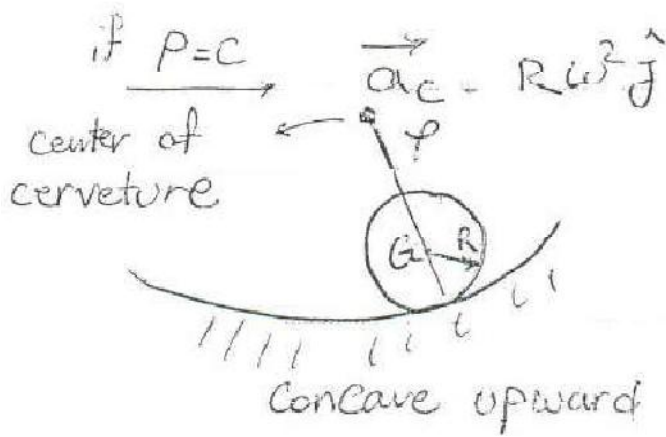 if P=C
a⃗c = Rω² ĵ
center of
cerveture
ρ
G
R
concave upward